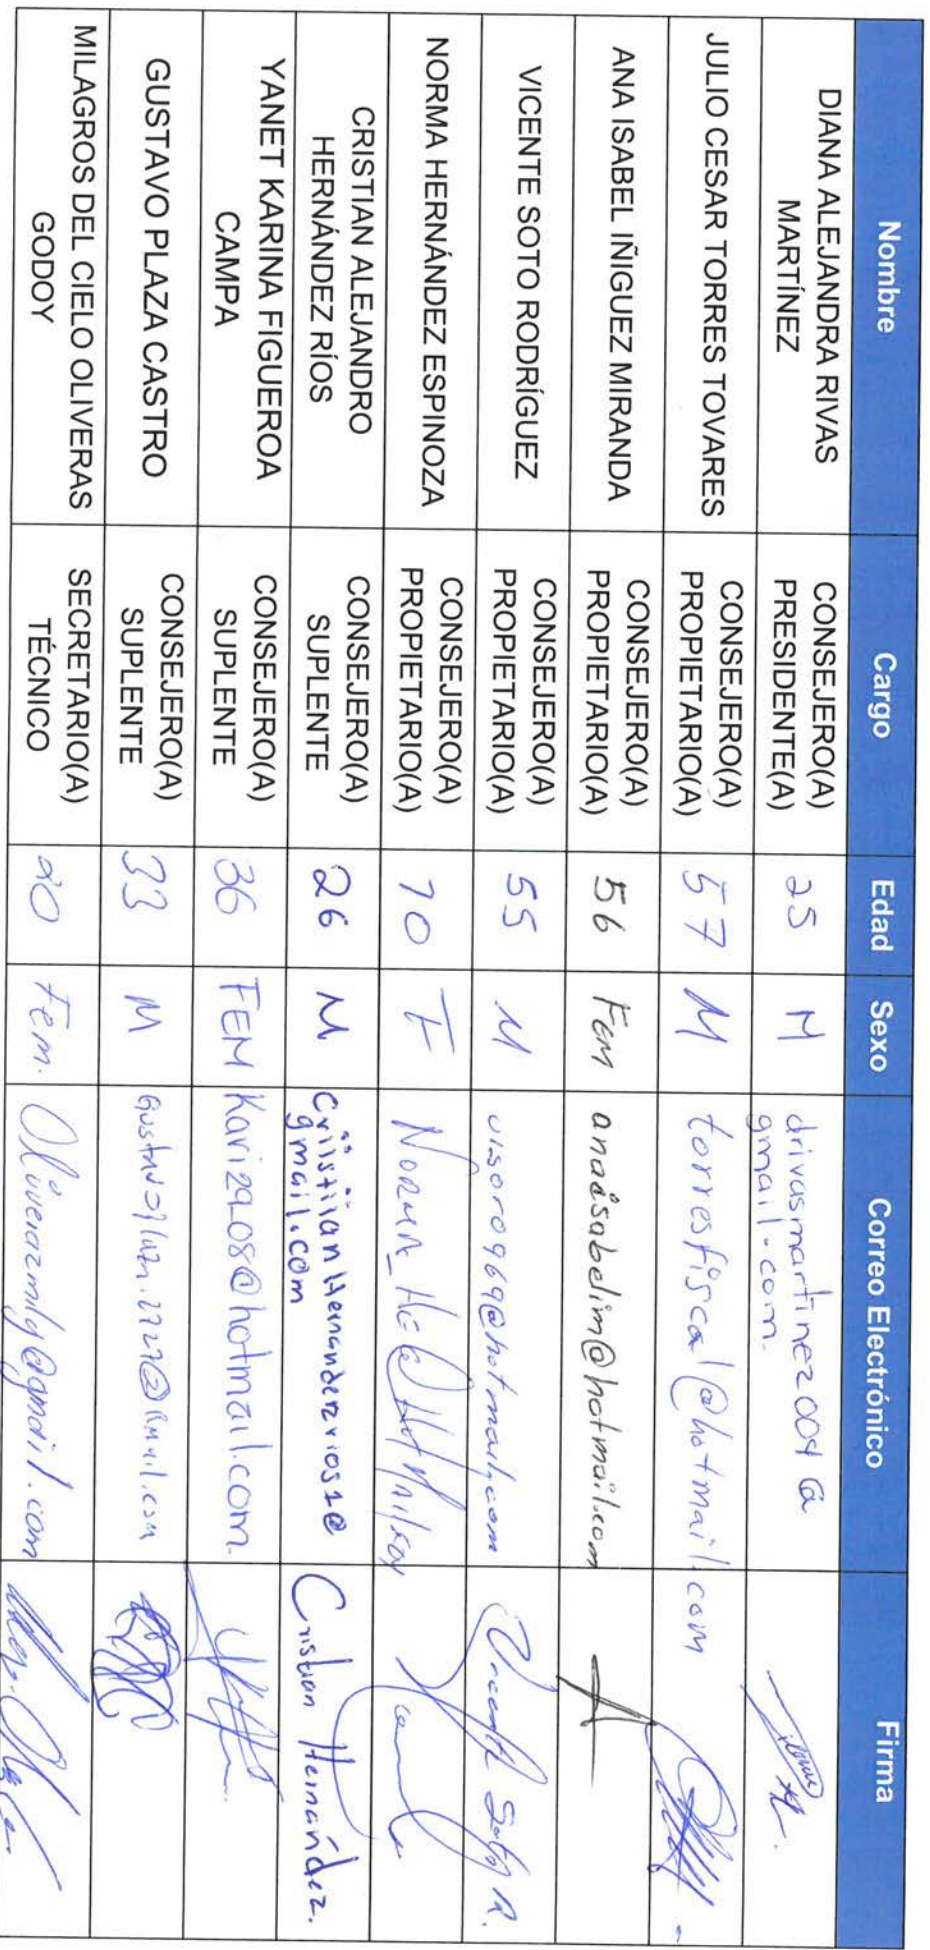 Nombre Cargo Edad Sexo Correo Electrónico Firma
DIANA ALEJANDRA RIVAS
MARTÍNEZ
CONSEJERO(A)
PRESIDENTE(A)
25
M
drivasmartinez004@
gmail.com.
JULIO CESAR TORRES TOVARES
CONSEJERO(A)
PROPIETARIO(A)
57
M
torresfiscal@hotmail.com
ANA ISABEL IÑIGUEZ MIRANDA
CONSEJERO(A)
PROPIETARIO(A)
56
Fem
anaisabelim@hotmail.com
VICENTE SOTO RODRÍGUEZ
CONSEJERO(A)
PROPIETARIO(A)
55
M
visoro969@hotmail.com
Vicente Soto R.
NORMA HERNÁNDEZ ESPINOZA
CONSEJERO(A)
PROPIETARIO(A)
70
F
Norma_HE@HotMail.com
CRISTIAN ALEJANDRO
HERNÁNDEZ RÍOS
CONSEJERO(A)
SUPLENTE
26
M
CriistiianHernanderzrios1@
gmail.com
Cristian Hernández.
YANET KARINA FIGUEROA
CAMPA
CONSEJERO(A)
SUPLENTE
36
FEM
Kari2908@hotmail.com.
GUSTAVO PLAZA CASTRO
CONSEJERO(A)
SUPLENTE
33
M
MILAGROS DEL CIELO OLIVERAS
GODOY
SECRETARIO(A)
TÉCNICO
20
Fem.
Oliverazmily@gmail.com